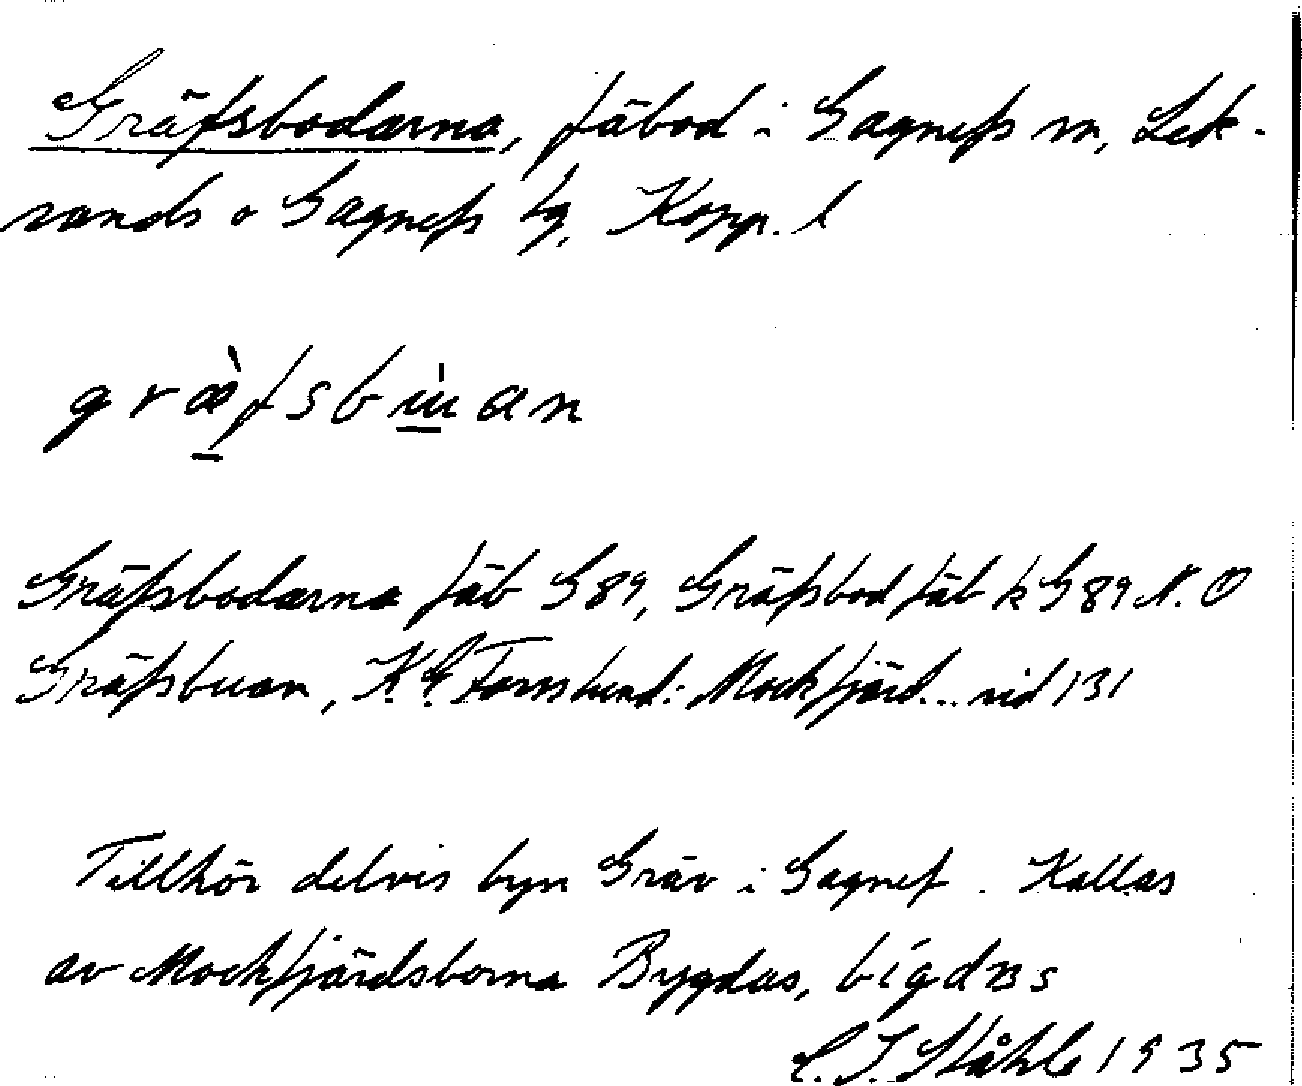 Gräfsbodarna, fäbod i Gagnefs sn, Lek-
sands o Gagnefs tg, Kopp. l
græ̀fsbɯ̀an
Gräfsbodarna fäb G89, Gräfsbod fäb k G89 N.O
Gräfsbuan, K. E. Forsslund: Mockfjärd... sid 131
Tillhör delvis byn Gräv i Gagnef. Kallas
av Mockfjärdsborna Bygdas, bígdʙs
C. I. Ståhle 1935